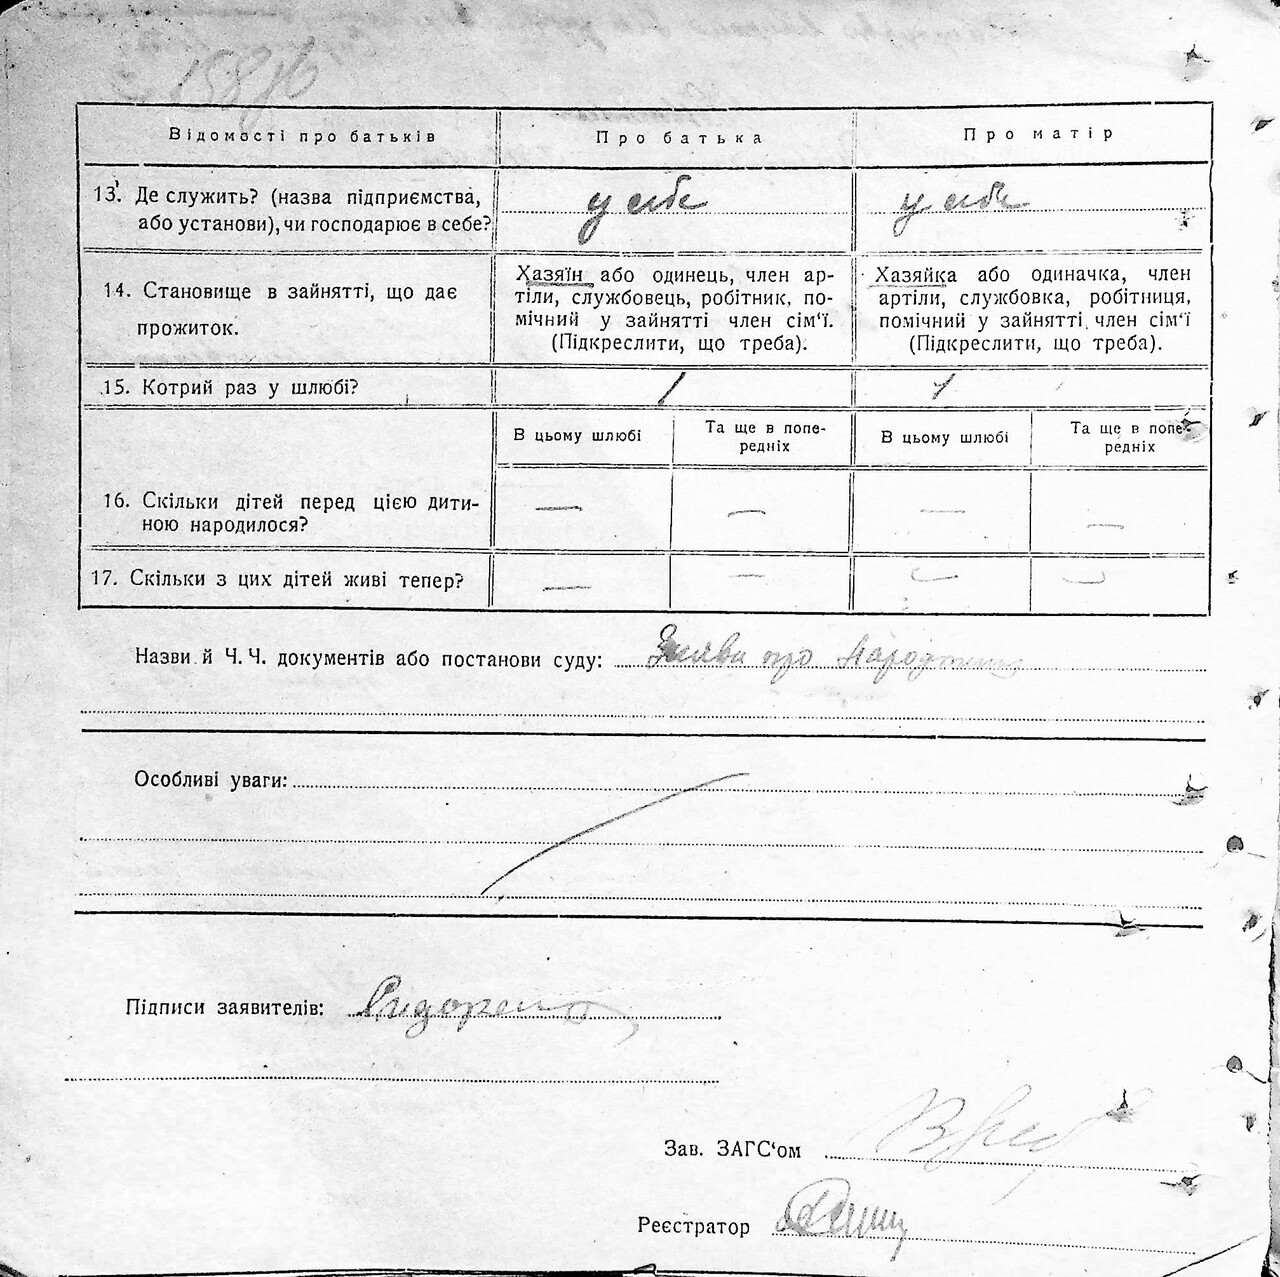 Відомості про батьків
Про батька
Про матір
13. Де служить? (назва підприємства,
або установи), чи господарює в себе?
у себе
у себе
14. Становище в зайнятті, що дає
прожиток.
Хазяїн або одинець, член ар-
тіли, службовець, робітник, по-
мічний у зайнятті член сім‘ї.
(Підкреслити, що треба).
Хазяйка або одиначка, член
артіли, службовка, робітниця,
помічний у зайнятті член сім‘ї
(Підкреслити, що треба).
15. Котрий раз у шлюбі?
1
1
В цьому шлюбі
Та ще в попе-
редніх
В цьому шлюбі
Та ще в попе-
редніх
16. Скільки дітей перед цією дити-
ною народилося?
— — — —
17. Скільки з цих дітей живі тепер?
— — — —
Назви й Ч. Ч. документів або постанови суду: Заява про народження
Особливі уваги:
Підписи заявителів:
Зав. ЗАГС‘ом
Реєстратор